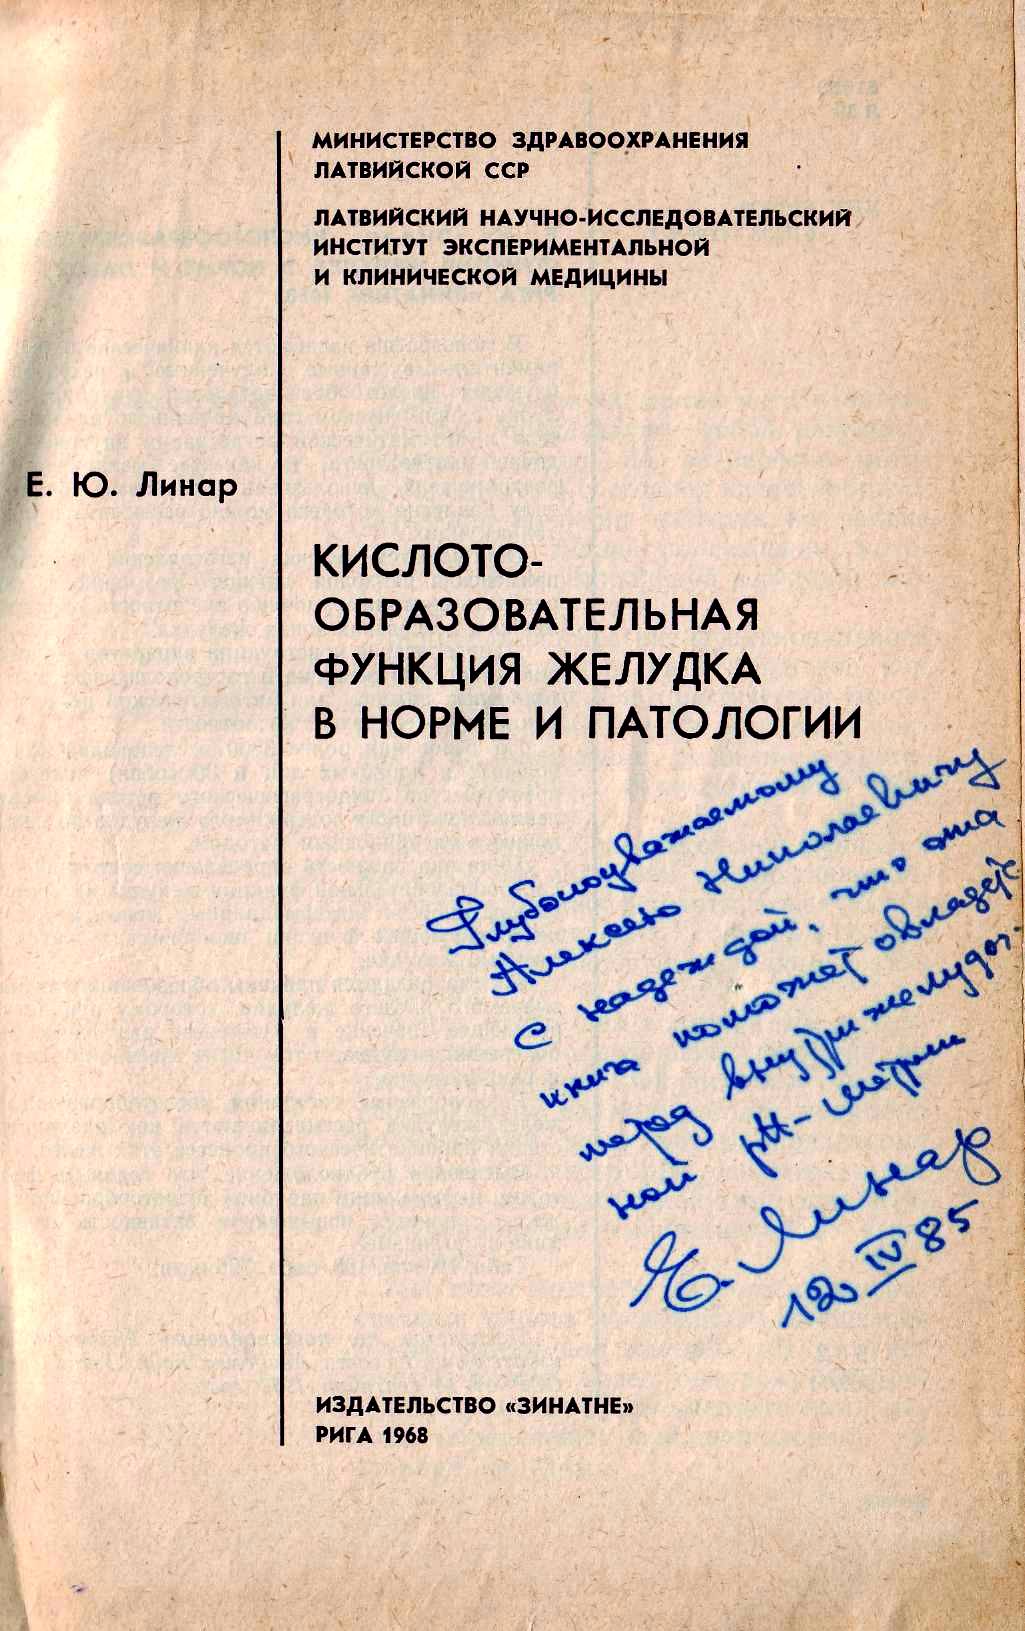 МИНИСТЕРСТВО ЗДРАВООХРАНЕНИЯ
ЛАТВИЙСКОЙ ССР
ЛАТВИЙСКИЙ НАУЧНО-ИССЛЕДОВАТЕЛЬСКИЙ
ИНСТИТУТ ЭКСПЕРИМЕНТАЛЬНОЙ
И КЛИНИЧЕСКОЙ МЕДИЦИНЫ
Е. Ю. Линар
КИСЛОТО-
ОБРАЗОВАТЕЛЬНАЯ
ФУНКЦИЯ ЖЕЛУДКА
В НОРМЕ И ПАТОЛОГИИ
Глубокоуважаемому
Алексею Николаевичу
с надеждой, что эта
книга поможет
метод внутрижелудоч-
ной pH-метрии
Е. Линар
12 IV 85
ИЗДАТЕЛЬСТВО «ЗИНАТНЕ»
РИГА 1968